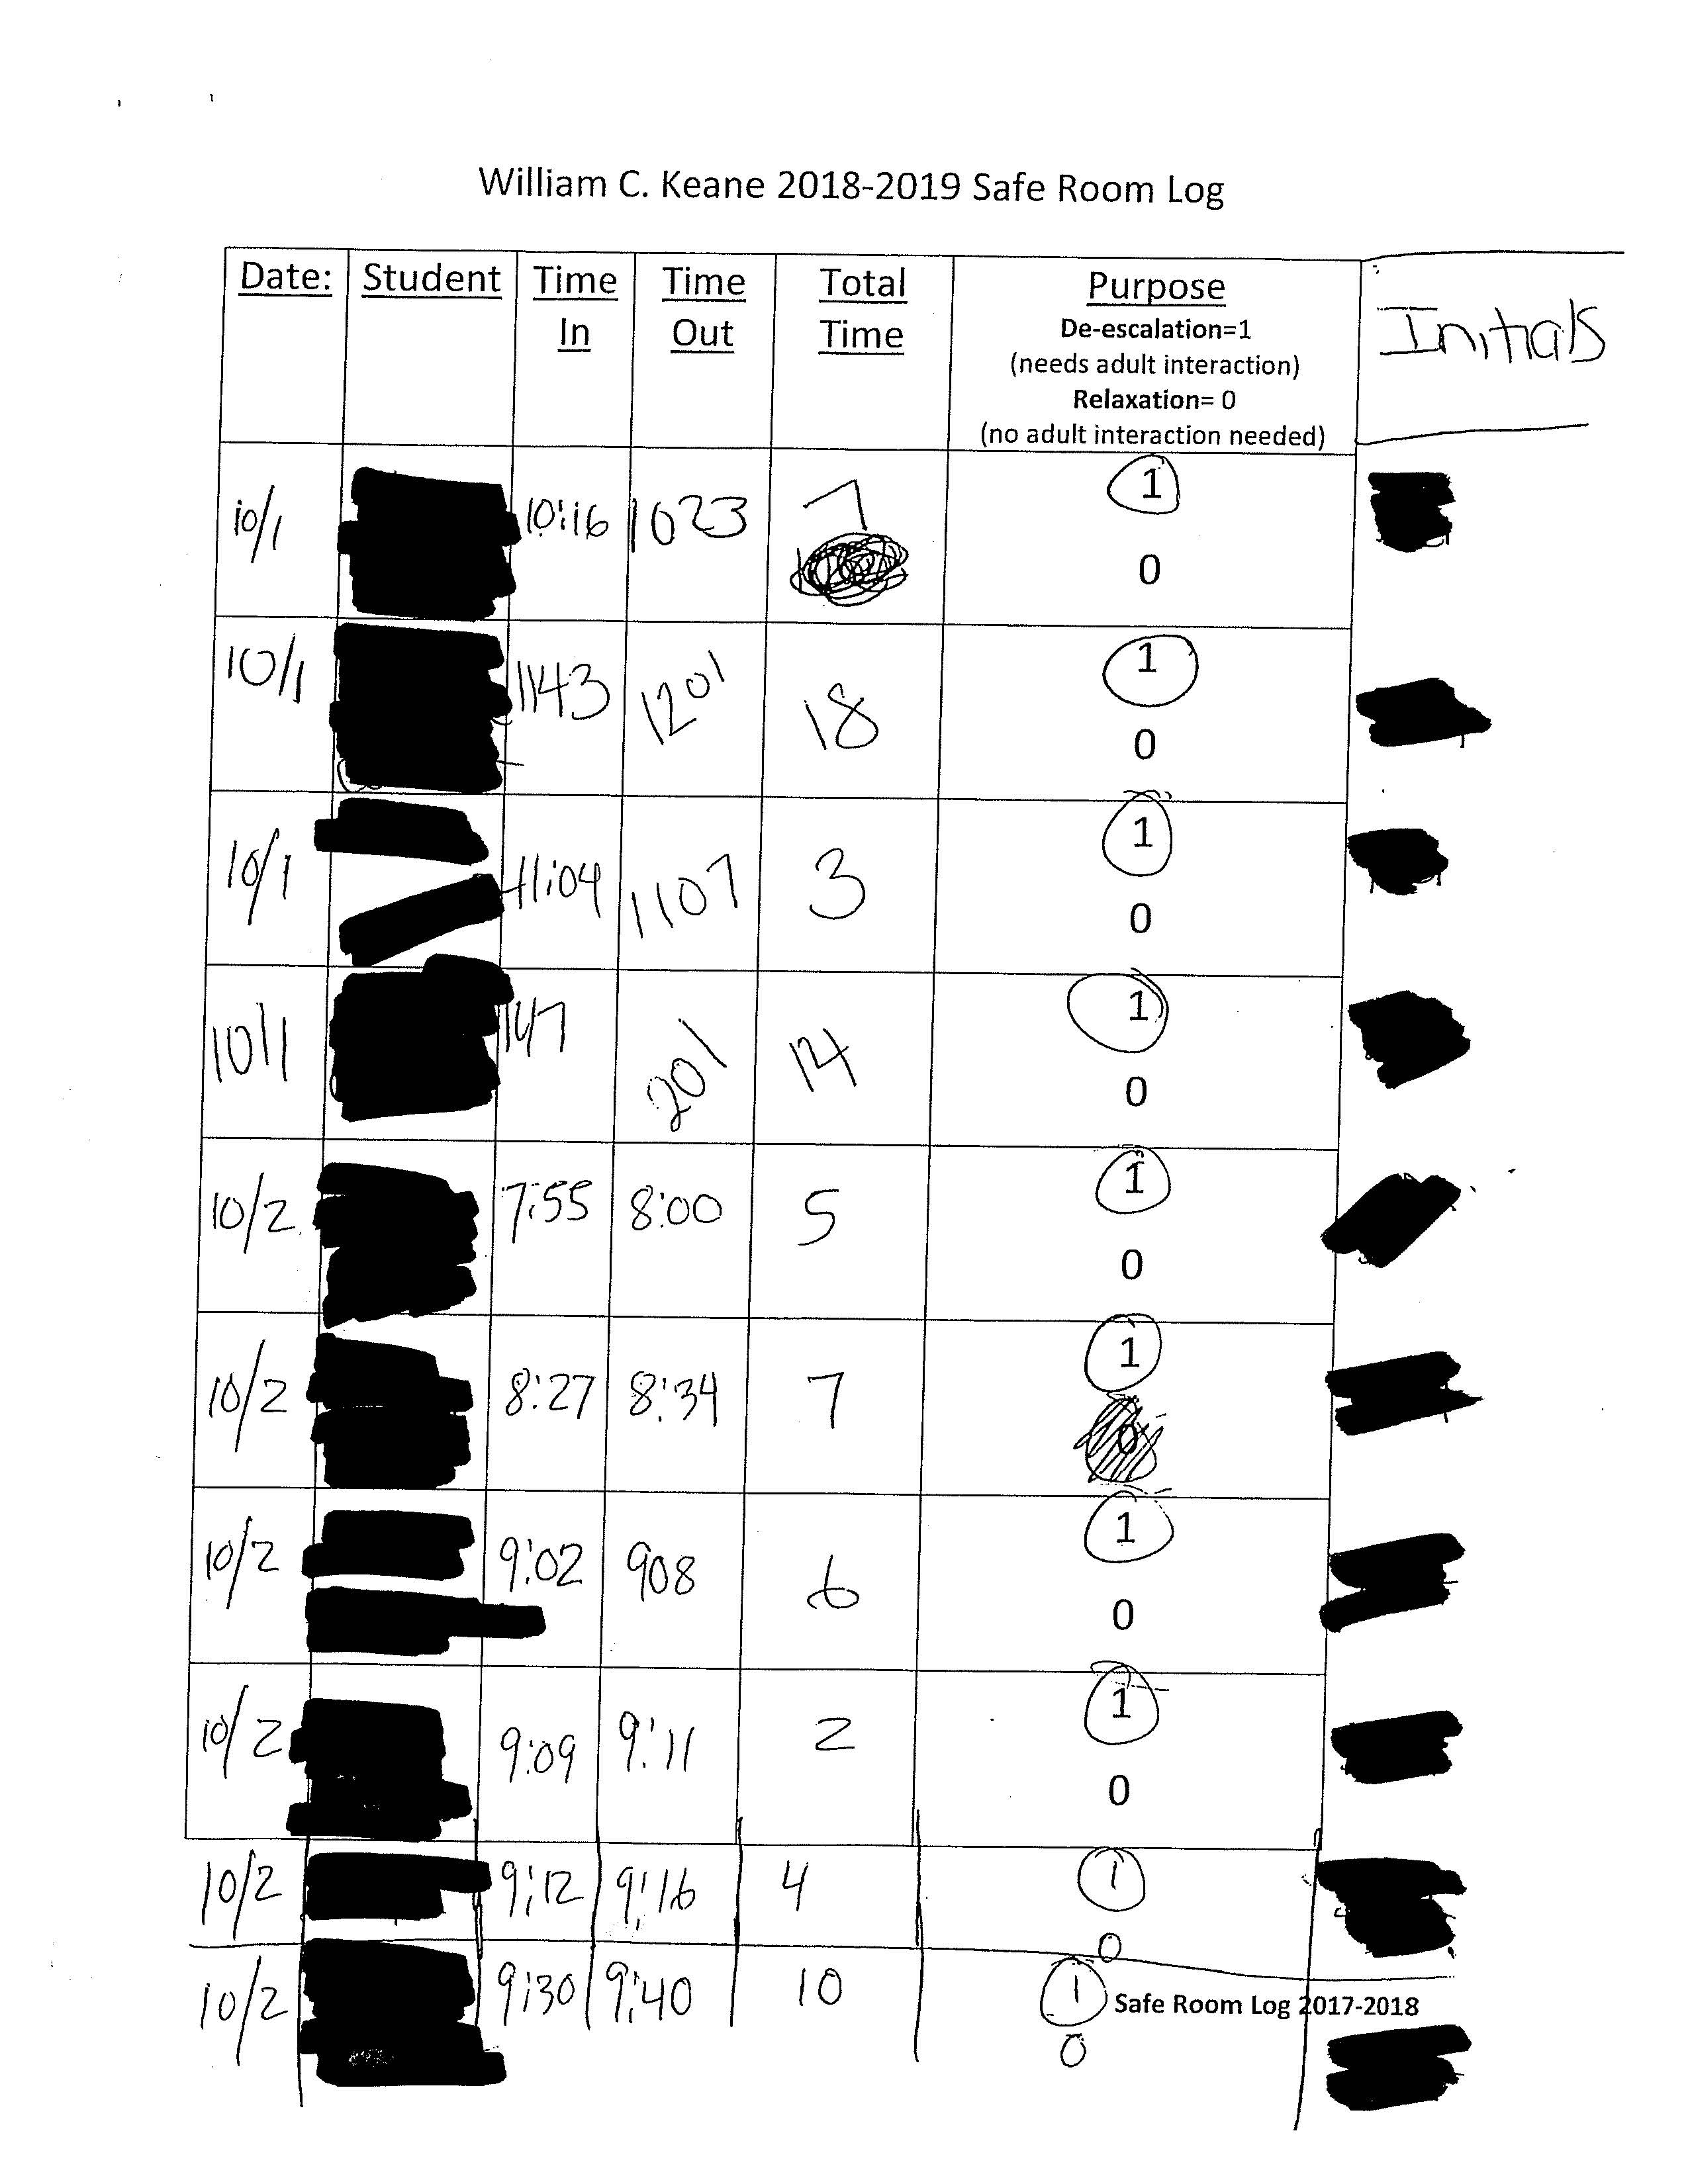 William C. Keane 2018-2019 Safe Room Log
Date: Student Time In Time Out Total Time Purpose Initials
De-escalation=1
(needs adult interaction)
Relaxation= 0
(no adult interaction needed)
10/1 10:16 1023 7 1
0
10/1 1143 1201 18 1
0
10/1 11:04 1107 3 1
0
10/1 147 201 14 1
0
10/2 7:55 8:00 5 1
0
10/2 8:27 8:34 7 1
0
10/2 9:02 908 6 1
0
10/2 9:09 9:11 2 1
0
10/2 9:12 9:16 4 1
0
10/2 9:30 9:40 10 1
Safe Room Log 2017-2018
0